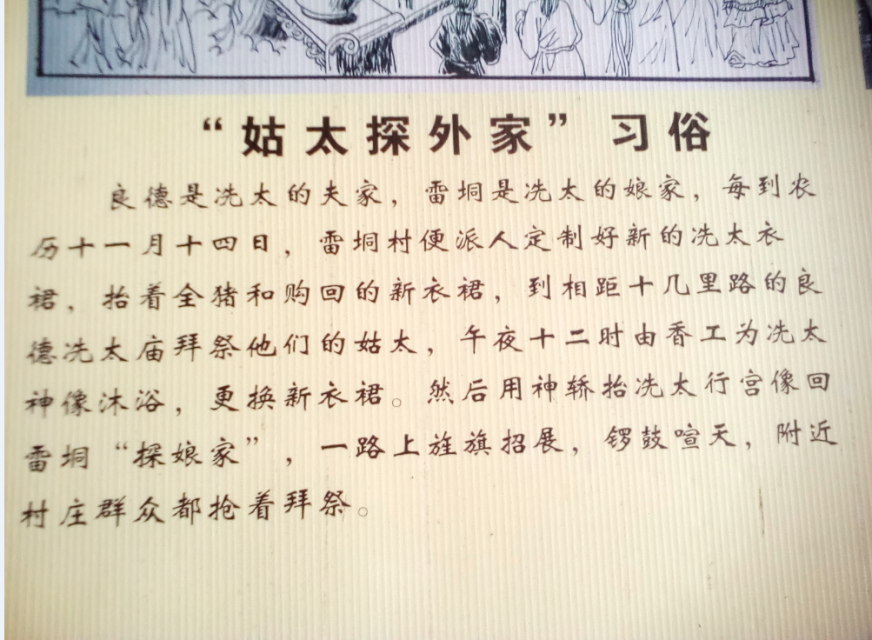 “姑太探外家”习俗
良德是冼太的夫家，雷垌是冼太的娘家，每到农
历十一月十四日，雷垌村便派人定制好新的冼太衣
裙，抬着全猪和购回的新衣裙，到相距十几里路的良
德冼太庙拜祭他们的姑太，午夜十二时由香工为冼太
神像沐浴，更换新衣裙。然后用神轿抬冼太行宫像回
雷垌“探娘家”，一路上旌旗招展，锣鼓喧天，附近
村庄群众都抢着拜祭。